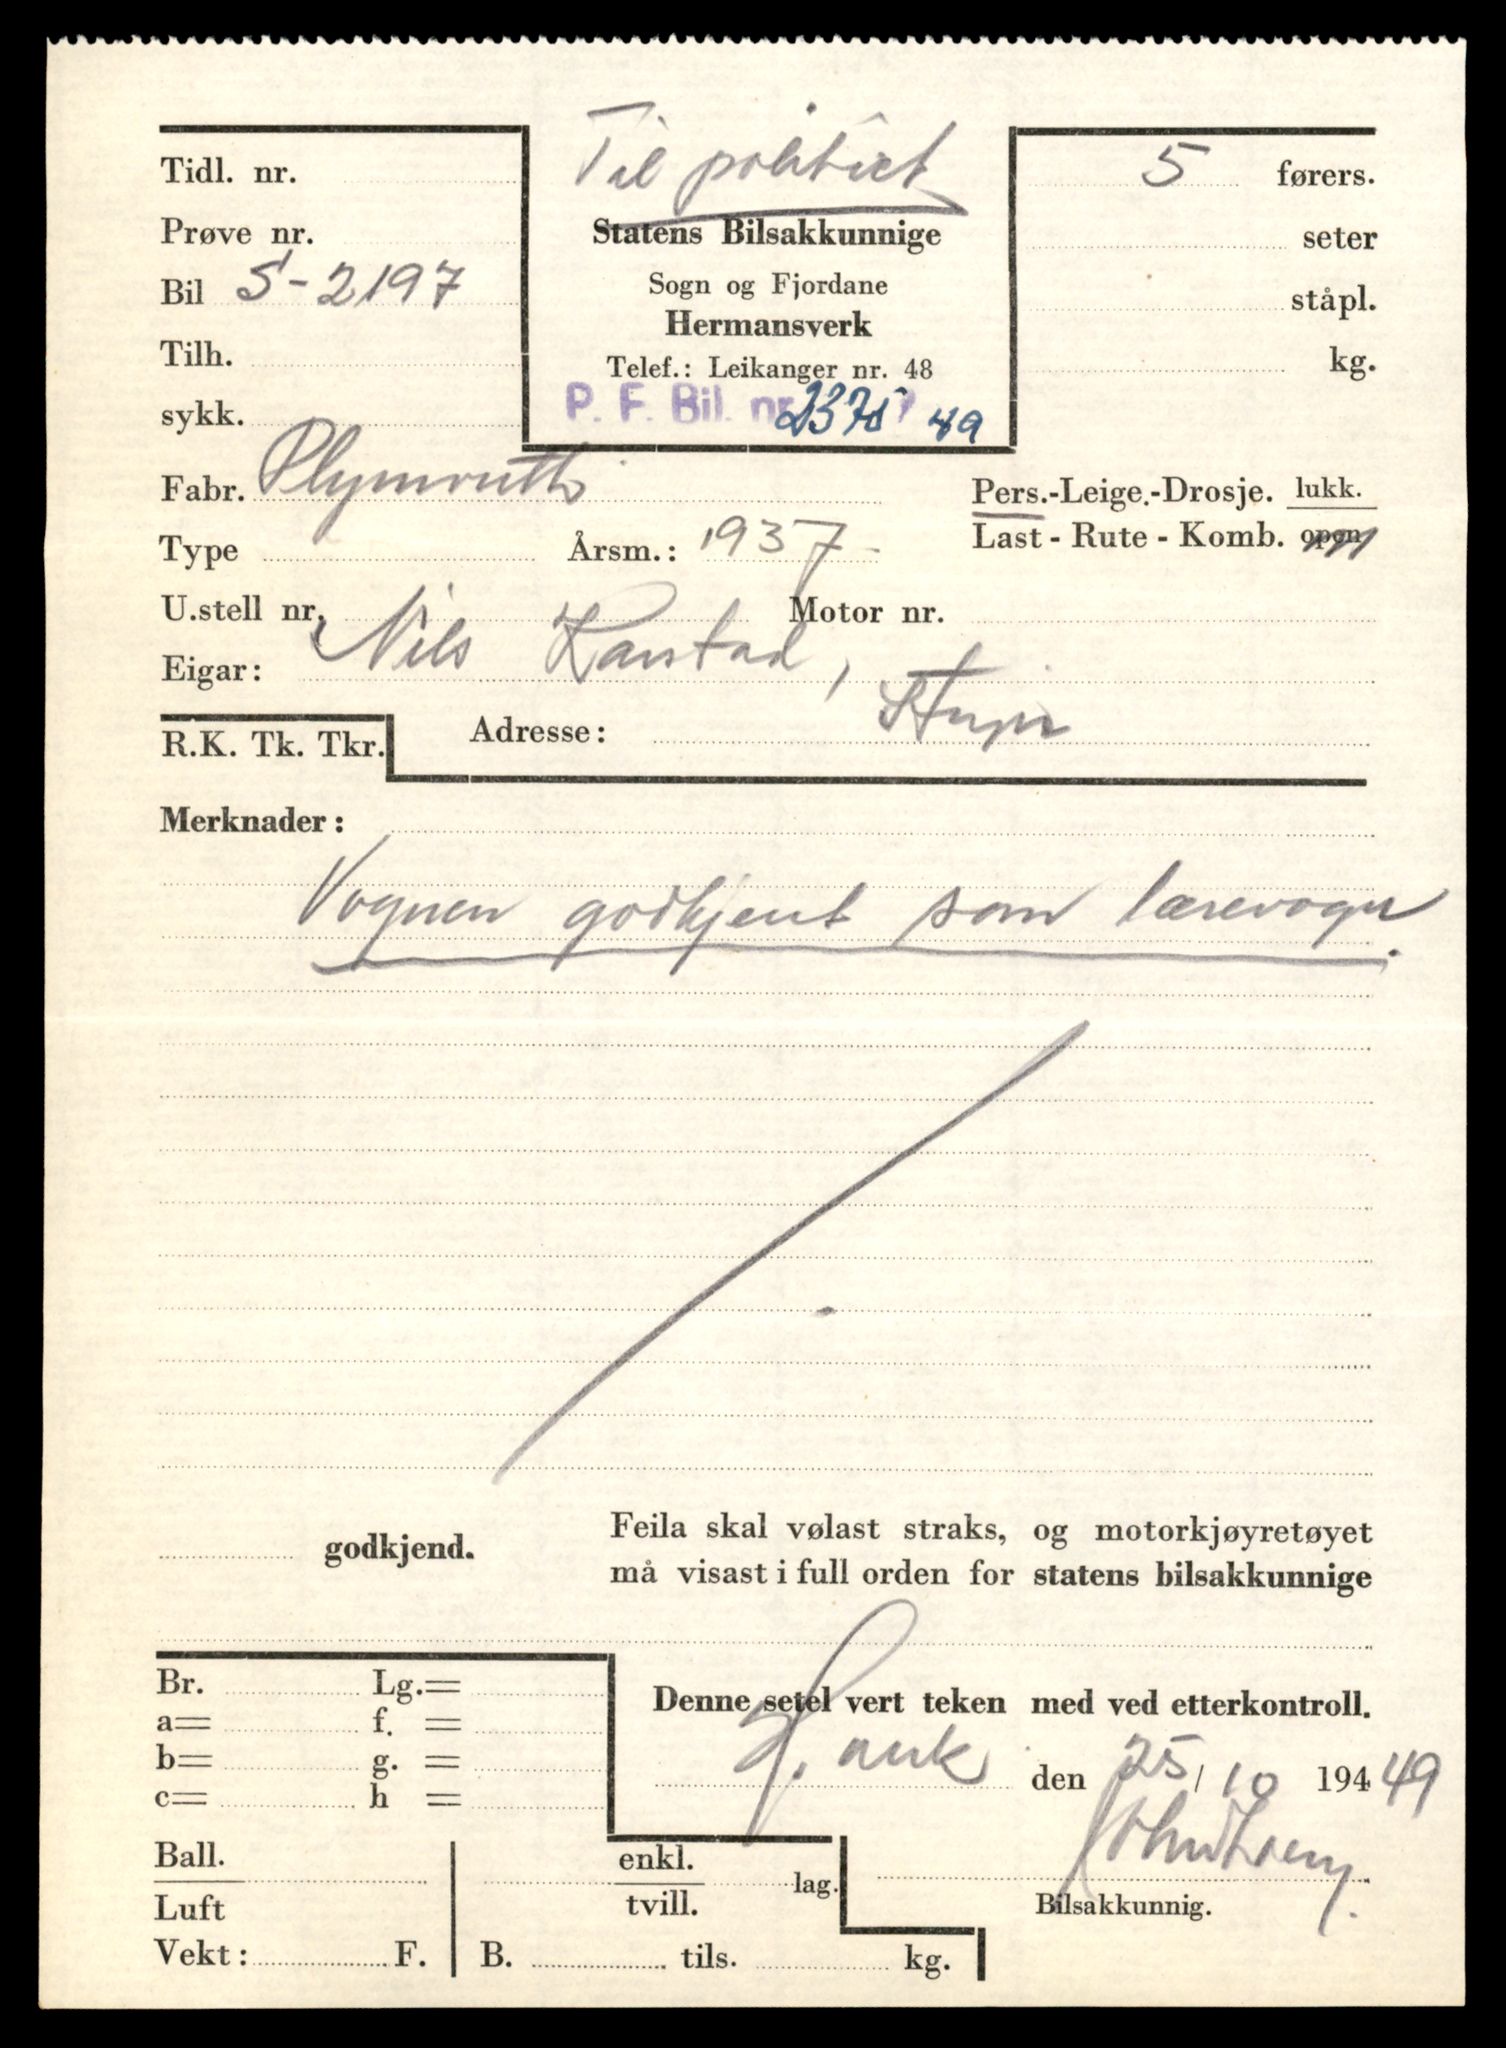 Til politiet
Tidl. nr.
Prøve nr.
Bil S-2197
Tilh.
sykk.
Statens Bilsakkunnige
Sogn og Fjordane
Hermansverk
Telef.: Leikanger nr. 48
P. F. Bil. nr. 49
5 førers.
seter
ståpl.
kg.
Fabr. Plymouth
Pers.-Leige.-Drosje. lukk.
Type Årsm.: 1937
Last - Rute - Komb. open
U.stell nr. Motor nr.
Eigar: Nils Karstad,
R.K. Tk. Tkr. Adresse: Stryn
Merknader:
Vognen godkjent som lærevogn.
godkjend.
Feila skal vølast straks, og motorkjøyretøyet
må visast i full orden for statens bilsakkunnige
Br. Lg.=
a= f. =
b= g. =
c= h =
Denne setel vert teken med ved etterkontroll.
den 25/10 194 49
Ball.
Luft
enkl.
tvill.
lag.
Bilsakkunnig.
Vekt: F. B. tils. kg.